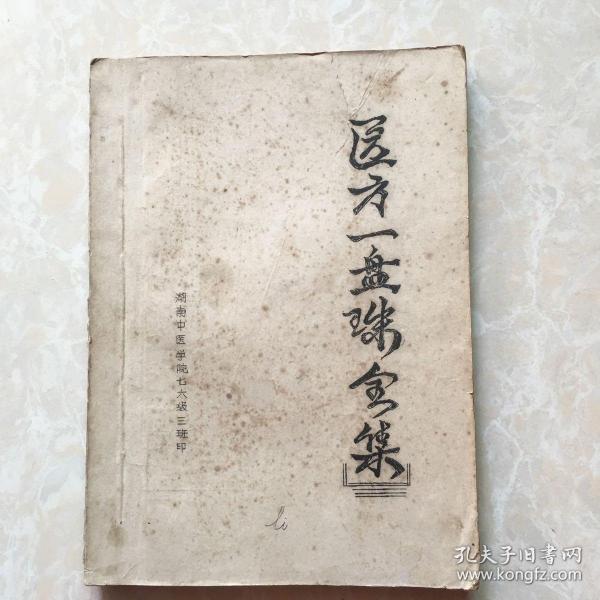 医方一盘珠全集
湖南中医学院七六级三班印
li
孔夫子旧书网
www.kongfz.com